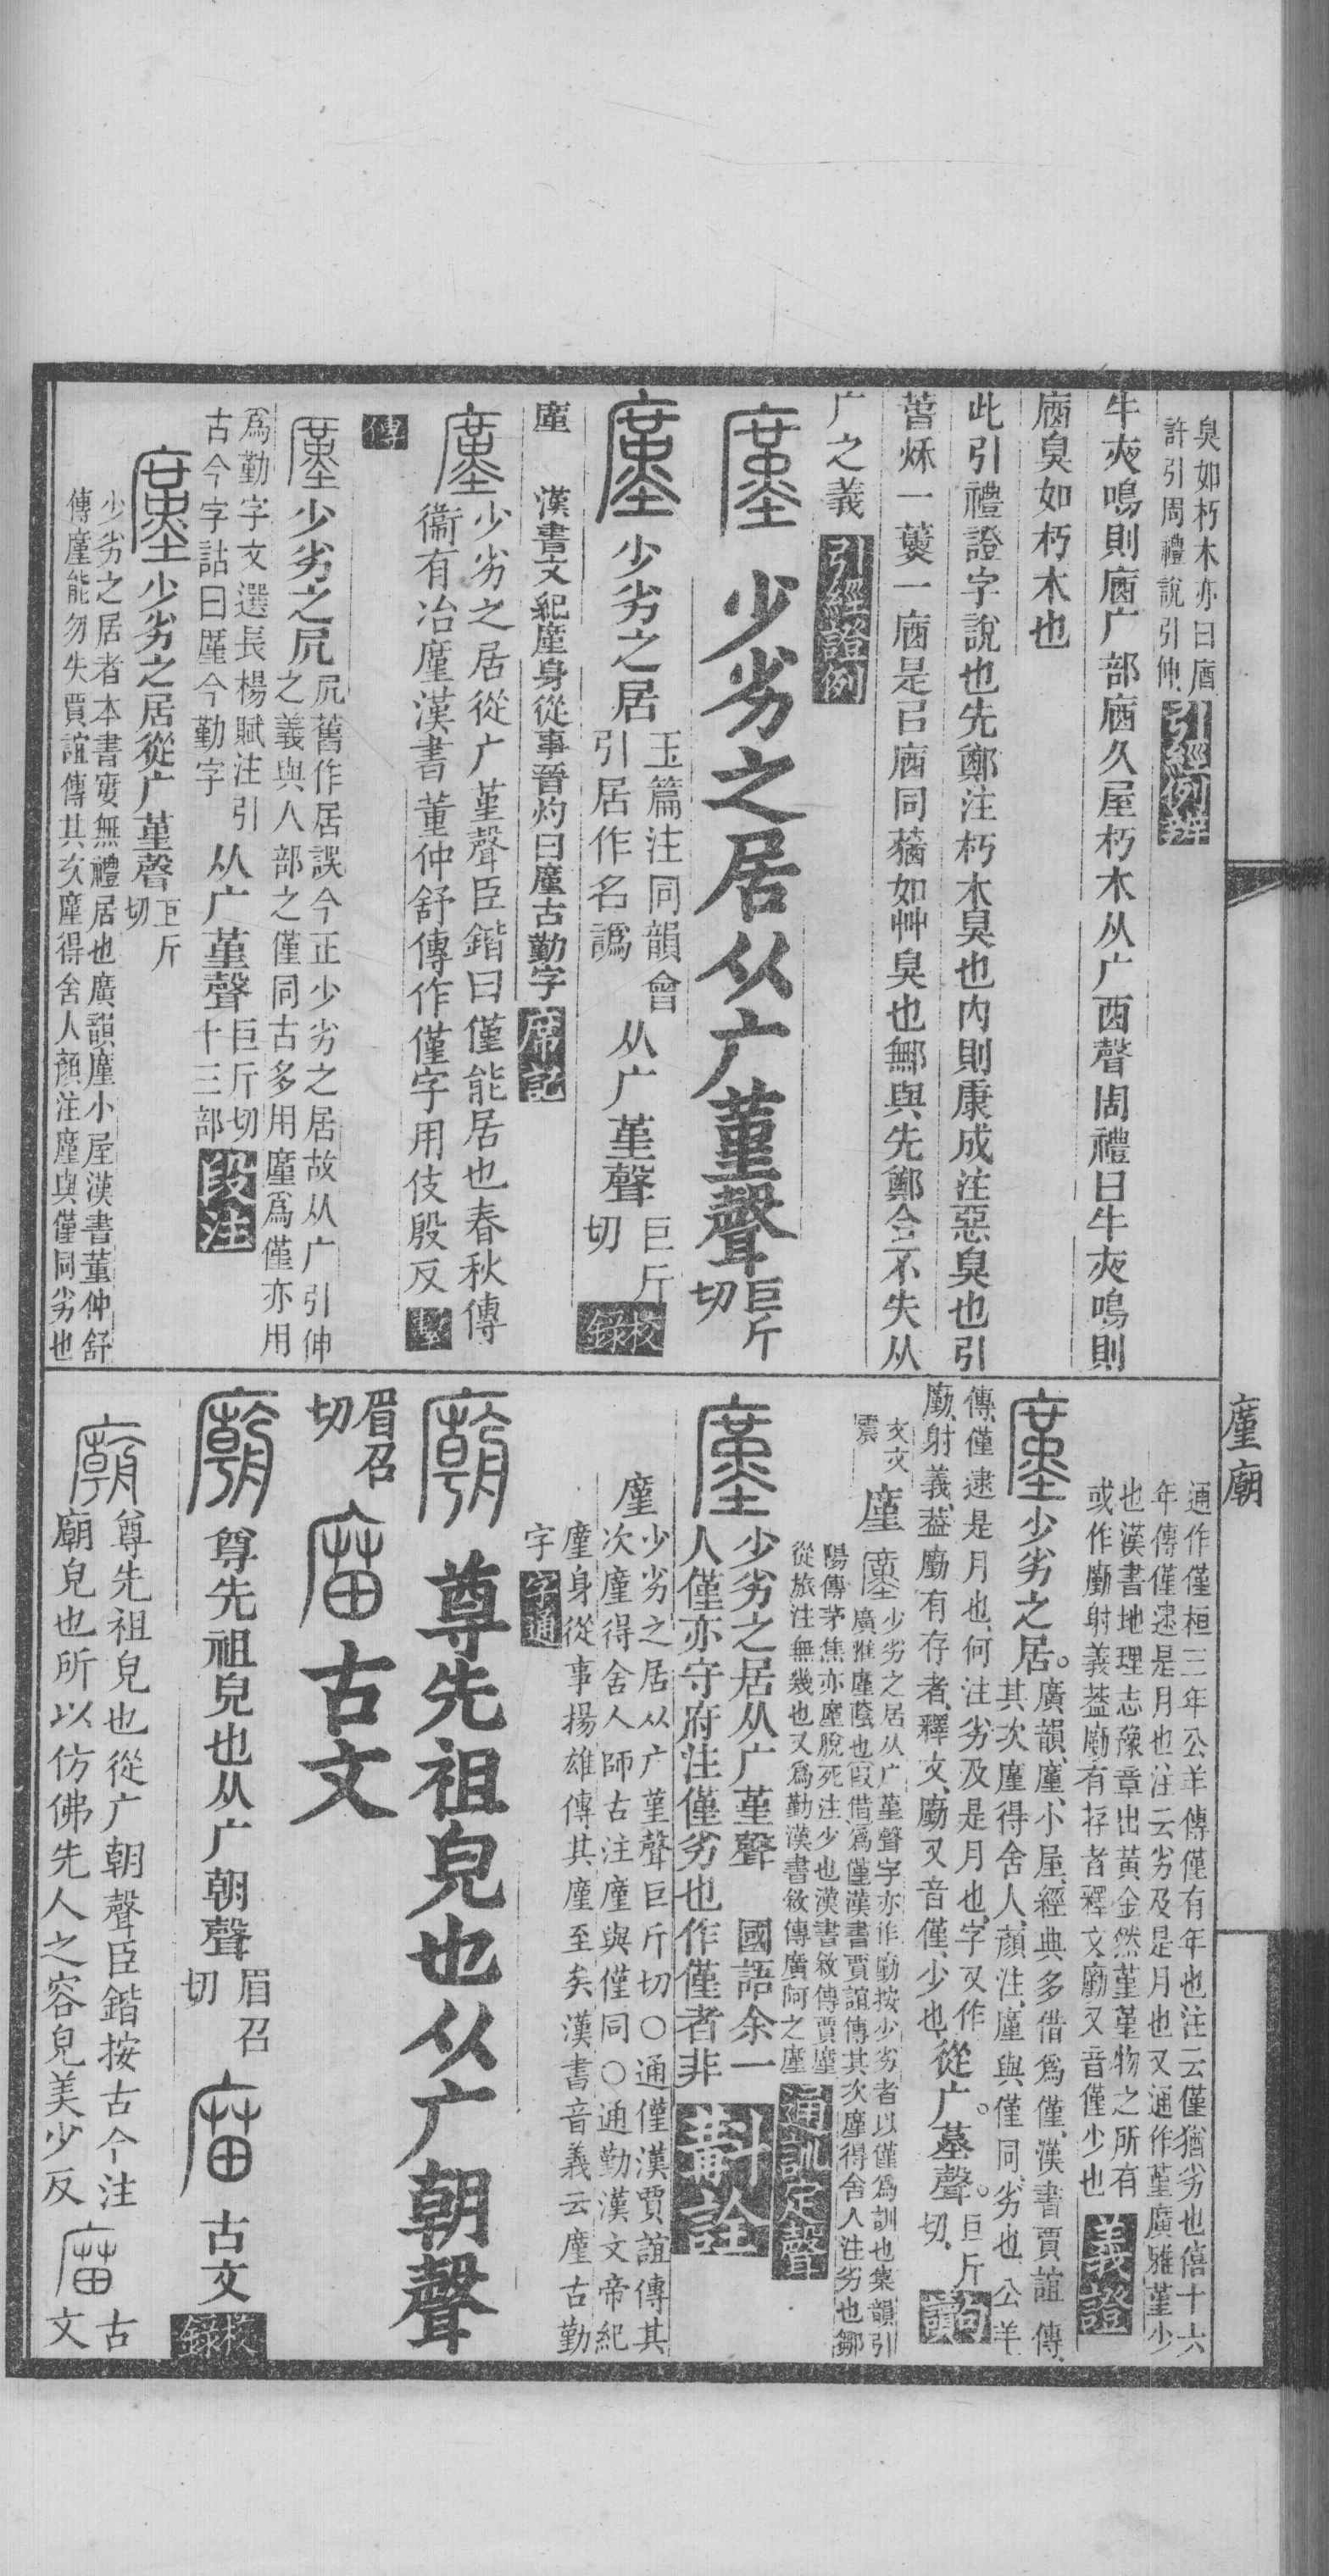 臭如朽木亦曰庮
許引周禮說引伸
引經例辯
牛夜鳴則庮广部庮久屋朽木从广酉聲周禮曰牛夜鳴則
庮臭如朽木也
此引禮證字說也先鄭注朽木臭也內則康成注惡臭也引
一薰一庮是㠯庮同蕕如艸臭也鄦與先鄭合不失从
广之義
引經證例
廑
少劣之居从广堇聲巨斤
切
廑
少劣之居
玉篇注同韻會
引居作名譌
从广堇聲
巨斤
切
校錄
廑
漢書文紀廑身從事晉灼曰廑古勤字
席記
廑
少劣之居從广堇聲臣鍇曰僅能居也春秋傳
衞有冶廑漢書董仲舒傳作僅字用伎殷反
繫
傳
廑
少劣之凥
凥舊作居誤今正少劣之居故从广引伸
之義與人部之僅同古多用廑爲僅亦用
爲勤字文選長楊賦注引
古今字詁曰廑今勤字
从广堇聲
巨斤切
十三部
段注
廑
少劣之居從广堇聲
巨斤
切
少劣之居者本書寠無禮居也廣韻廑小屋漢書董仲舒
傳廑能勿失賈誼傳其次廑得舍人顏注廑與僅同劣也
廑廟
通作僅桓三年公羊傳僅有年也注云僅猶劣也僖十六
年傳僅逮是月也注云劣及是月也又通作堇廣雅堇少
也漢書地理志豫章出黃金然堇堇物之所有
或作廟射義葢有存者釋文又音僅少也
義證
廑
少劣之居。
廣韻、廑、小屋、經典多借爲僅、漢書賈誼傳、
其次廑得舍人、顏注、廑與僅同、劣也、公羊
傳、僅逮是月也、何注、劣及是月也、字又作
射義、葢有存者、釋文、又音僅、少也、
從广。堇聲。
巨斤
切、
句讀
文文
震
廑
廑
少劣之居从广堇聲字亦作按少劣者以僅爲訓也集韻引
廣雅廑蔭也叚借爲僅漢書賈誼傳其次廑得舍人注劣也鄒
陽傳茅焦亦廑脫死注少也漢書敘傳賈廑
從旅注無幾也又爲勤漢書敘傳廣阿之廑
通訓定聲
廑
少劣之居从广堇聲 國語余一
人僅亦守府注僅劣也作僅者非
斠詮
廑
少劣之居从广堇聲巨斤切○通僅漢賈誼傳其
次廑得舍人師古注廑與僅同○通勤漢文帝紀
廑身從事揚雄傳其廑至矣漢書音義云廑古勤
字
字通
廟
尊先祖皃也从广朝聲
眉召
切
庿
古文
廟
尊先祖皃也从广朝聲
眉召
切
庿
古文
校錄
廟
尊先祖皃也從广朝聲臣鍇按古今注
廟皃也所以仿佛先人之容皃美少反
庿
古
文